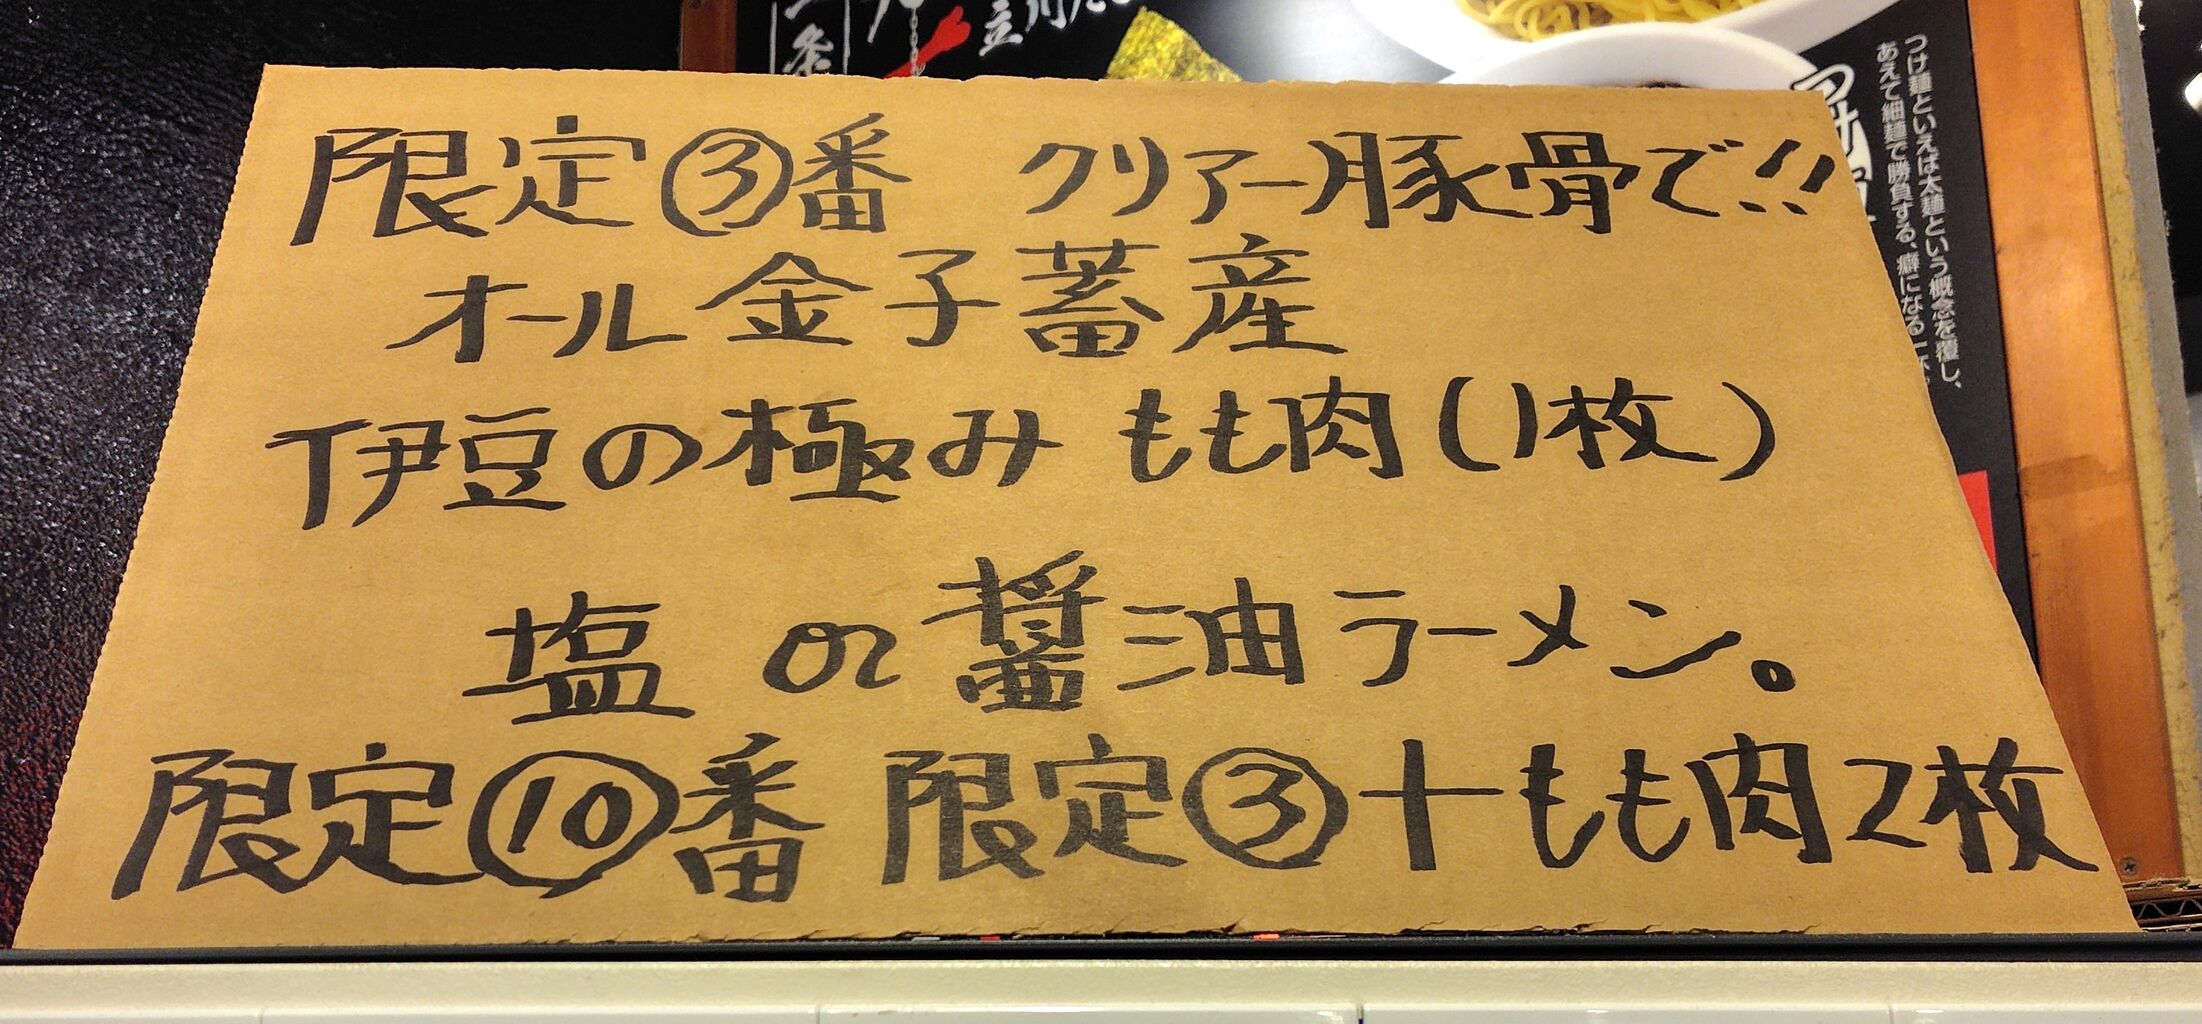 限定③番 クリアー豚骨で!!
オール金子蓄産
伊豆の極み もも肉(1枚)
塩 or 醤油ラーメン。
限定⑩番 限定③+もも肉2枚
つけ麺といえば太麺という概念を覆し、
あえて細麺で勝負する、癖になる一